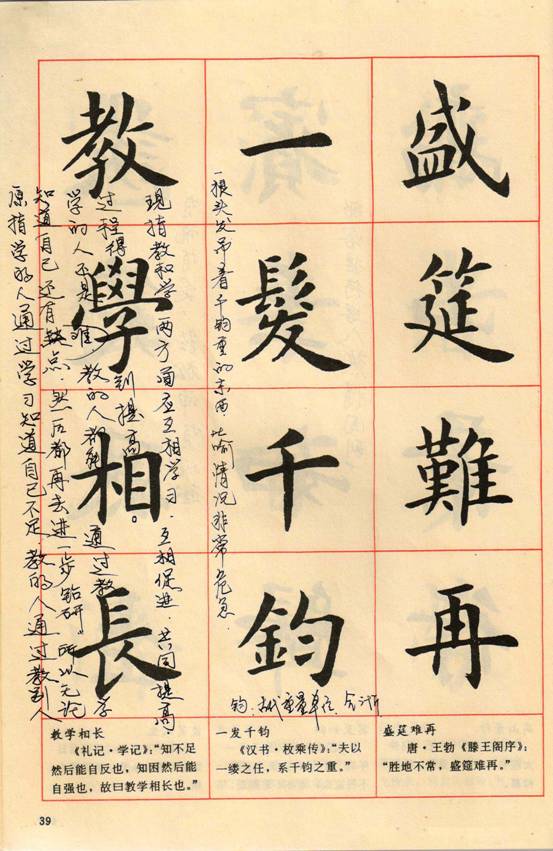 盛筵難再
一髮千鈞
教學相長
一根头发吊着千钧重的东西 比喻情况非常危急.
钧. 重量单位.
原指学的人通过学习知道自己不足,教的人通过教别人
知道自己还有缺点.然后都再去进一步钻研。所以无论
学的人还是教的人都能通过教学
过程得到提高。
现指教和学两方面应互相学习.互相促进.共同提高.
教学相长
《礼记·学记》:“知不足
然后能自反也,知困然后能
自强也,故曰教学相长也。”
一发千钧
《汉书·枚乘传》:“夫以
一缕之任,系千钧之重。”
盛筵难再
唐·王勃《滕王阁序》:
“胜地不常,盛筵难再。”
39